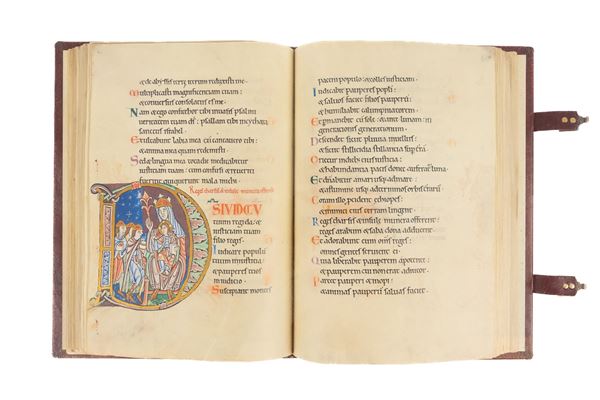 & de abyssis terre iterum reduxisti me.
Multiplicasti magnificentiam tuam:
& conversus consolatus es me.
Nam & ego confitebor tibi in vasis psalmi
veritatem tuam ds: psallam tibi in cythara
sanctus israhel.
Exultabunt labia mea cu cantavero tibi:
& anima mea quam redemisti.
Sed & lingua mea tota die meditabitur
iusticiam tuam: cum confusi & reveriti
fuerint qui querunt mala michi.
Reges tharsis & insule munera offerent
DS IUDICIU
tuum regi da: &
iusticiam tuam
filio regis.
Iudicare populu
tuum in iusticia:
& pauperes tuos
in iudicio.
Suscipiant montes
pacem populo: & colles iusticiam.
Iudicabit pauperes popli:
& salvos faciet filios pauperu:
& humiliabit calumpniatorem.
Et permanebit cu sole: & ante lunam: in
generationes generationum.
Descendet sicut pluvia in vellus:
& sicut stillicidia stillantia sup terra.
Orietur in dieb; eius iusticia:
& habundantia pacis: donec auferatur luna.
Et dnabitur a mari usq; ad mare:
& a flumine usq; ad terminos orbis terraru.
Coram illo pcident ethiopes:
& inimici eius terram lingent.
Reges tharsis & insule munera offerent:
reges arabum & saba dona adducent.
Et adorabunt eum oms reges:
omnes gentes servient ei.
Quia liberabit pauperem a potente:
& pauperem cui non erat adiutor.
Parcet pauperi & inopi:
& animas pauperu salvas faciet.